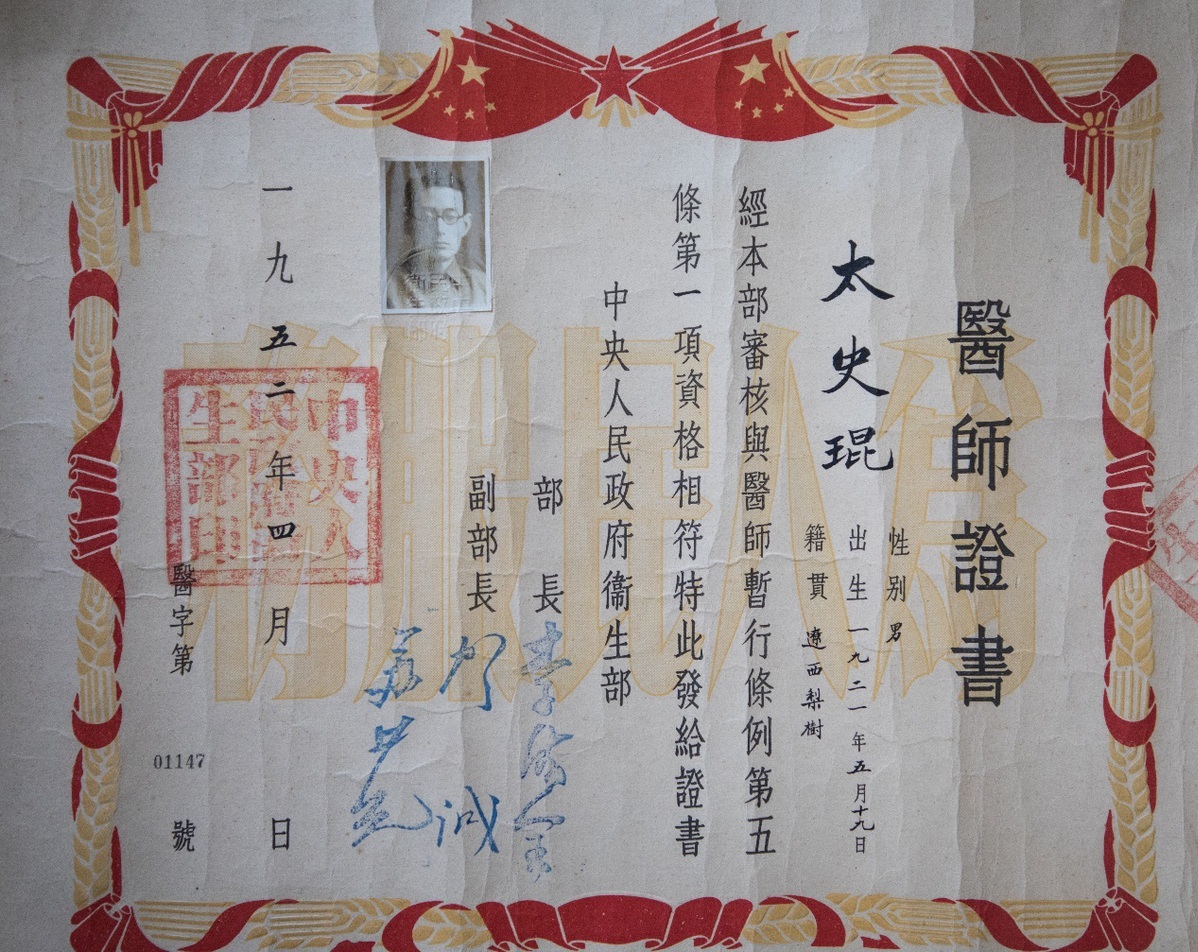 醫師證書
太史琨
性別 男
出生 一九二一年五月十九日
籍貫 遼西梨樹
經本部審核與醫師暫行條例第五
條第一項資格相符特此發給證書
中央人民政府衞生部
部長 李德全
副部長 賀誠
蘇井觀
一九五二年四月 日
醫字第 01147 號
中央人
民政府衞
生部印
為人民服務